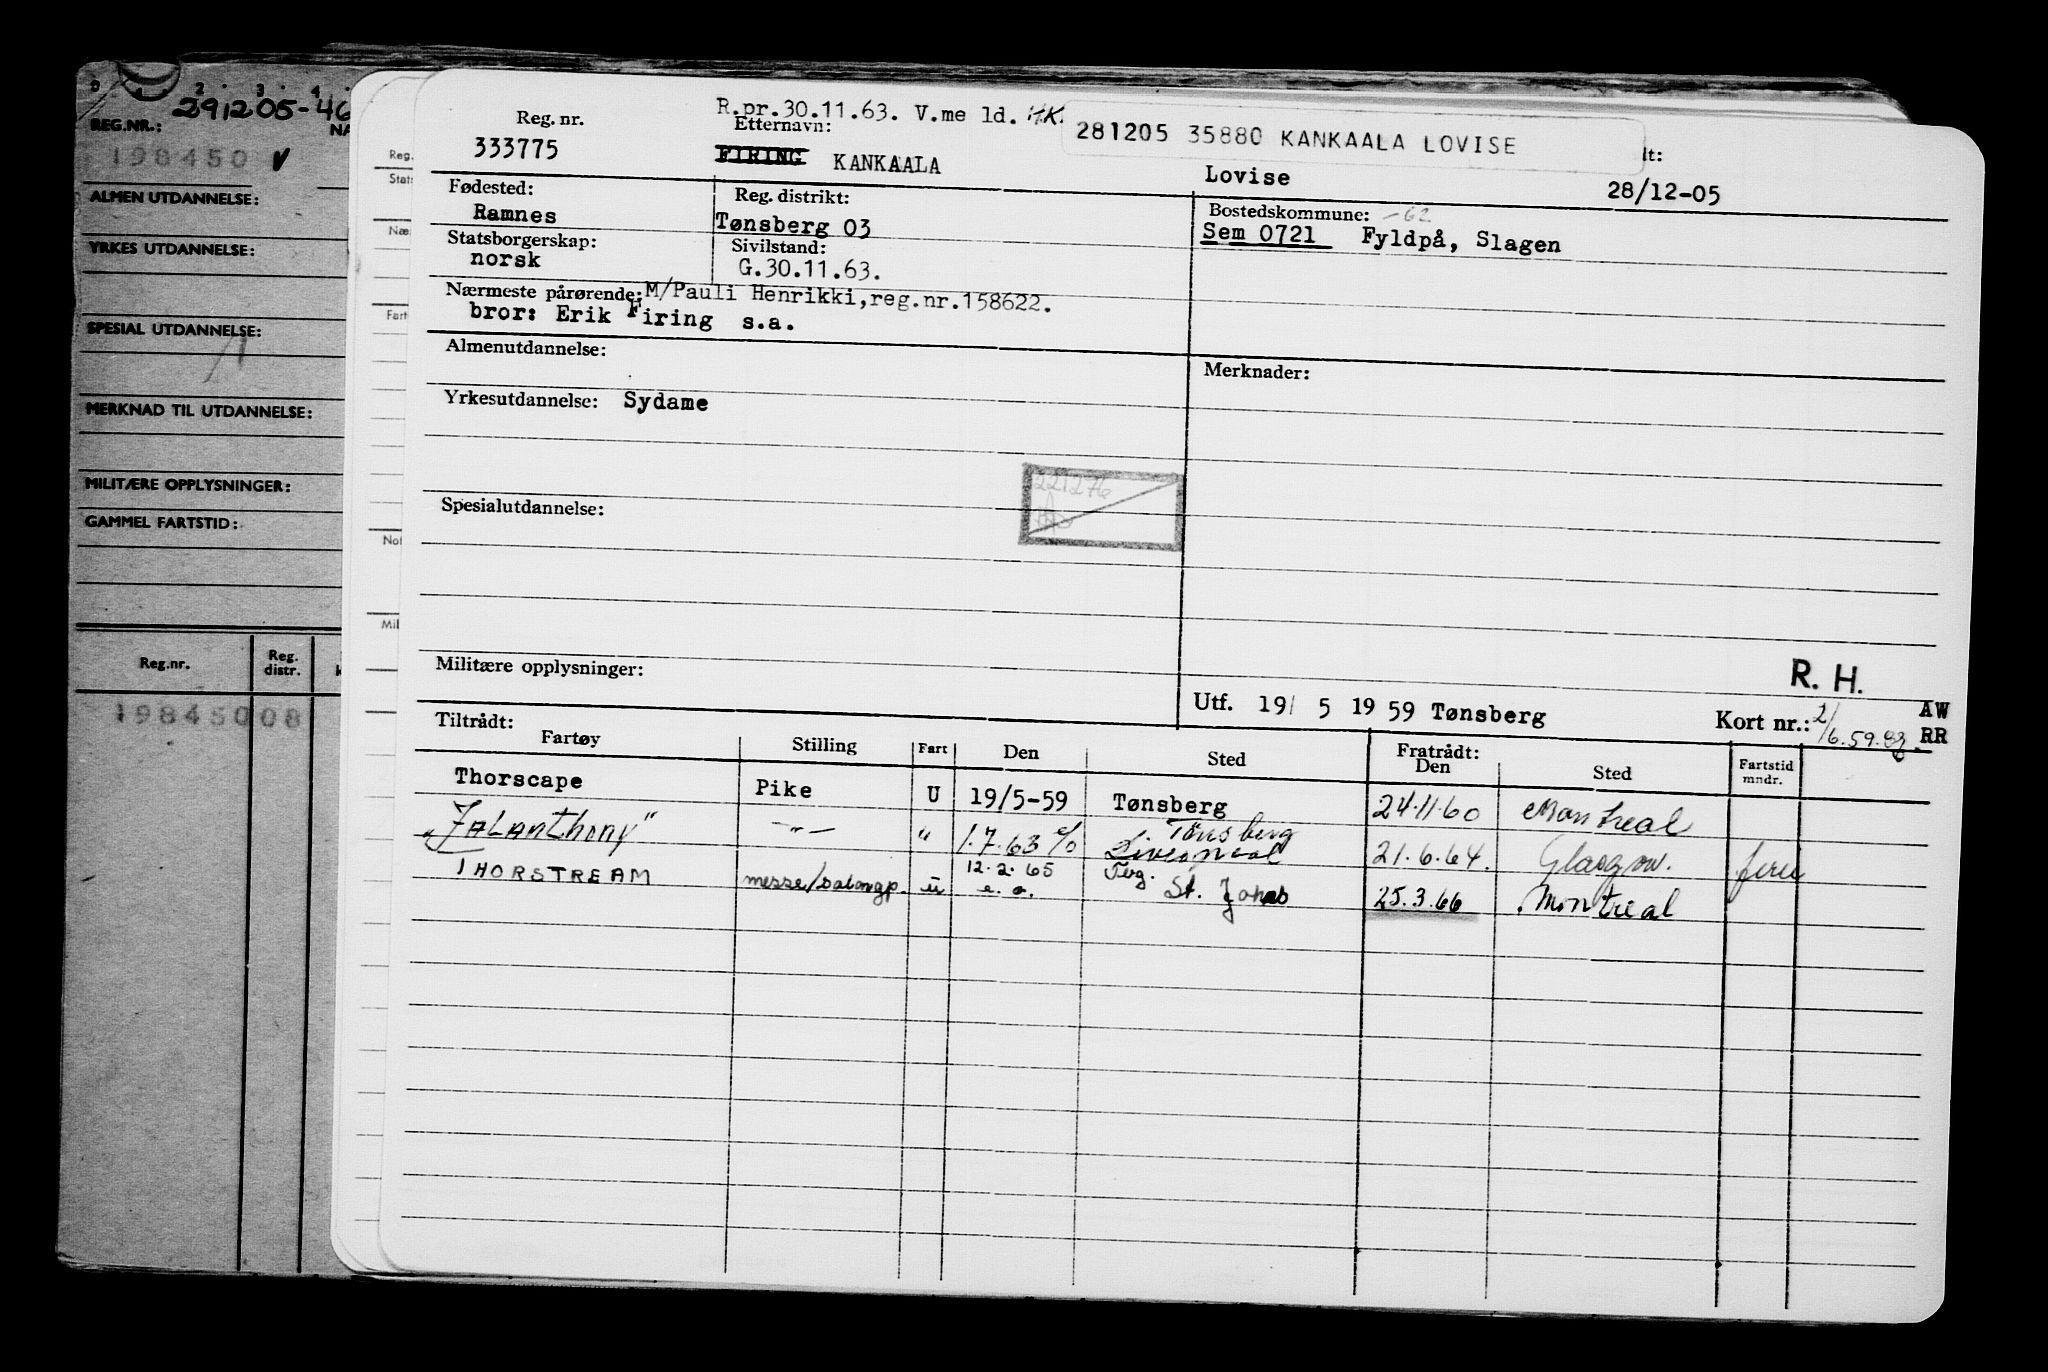 291205-46
REG.NR.: NA
198450 ✓
ALMEN UTDANNELSE:
YRKES UTDANNELSE:
SPESIAL UTDANNELSE:
MERKNAD TIL UTDANNELSE:
MILITÆRE OPPLYSNINGER:
GAMMEL FARTSTID:
Reg.nr. Reg. distr.
198450 08
Reg.
Stats
Næ
Fart
Not
Mil
R.pr.30.11.63. V.me ld. HK.
281205 35880 KANKAALA LOVISE
Reg. nr. Etternavn: dt:
333775 FIRING KANKAALA Lovise 28/12-05
Fødested: Reg. distrikt: Bostedskommune: -62
Ramnes Tønsberg 03 Sem 0721 Fyldpå, Slagen
Statsborgerskap: Sivilstand:
norsk G.30.11.63.
Nærmeste pårørende: M/Pauli Henrikki, reg.nr.158622.
bror: Erik Firing s.a.
Almenutdannelse: Merknader:
Yrkesutdannelse: Sydame
221276
Spesialutdannelse:
Militære opplysninger: R. H.
Utf. 19/ 5 19 59 Tønsberg Kort nr.: 2/6.59. AW RR
Tiltrådt:
Fartøy Stilling Fart Den Sted Fratrådt: Den Sted Fartstid mndr.
Thorscape Pike U 19/5-59 Tønsberg 24.11.60 Montreal
"Jalanthony" -"- " 1.7.63 e/o Tönsberg Liverpool 21.6.64. Glasgow. ferie
THORSTREAM messe/salongp. u 12.2.65 e.o. Tbg. St. Johns 25.3.66 Montreal